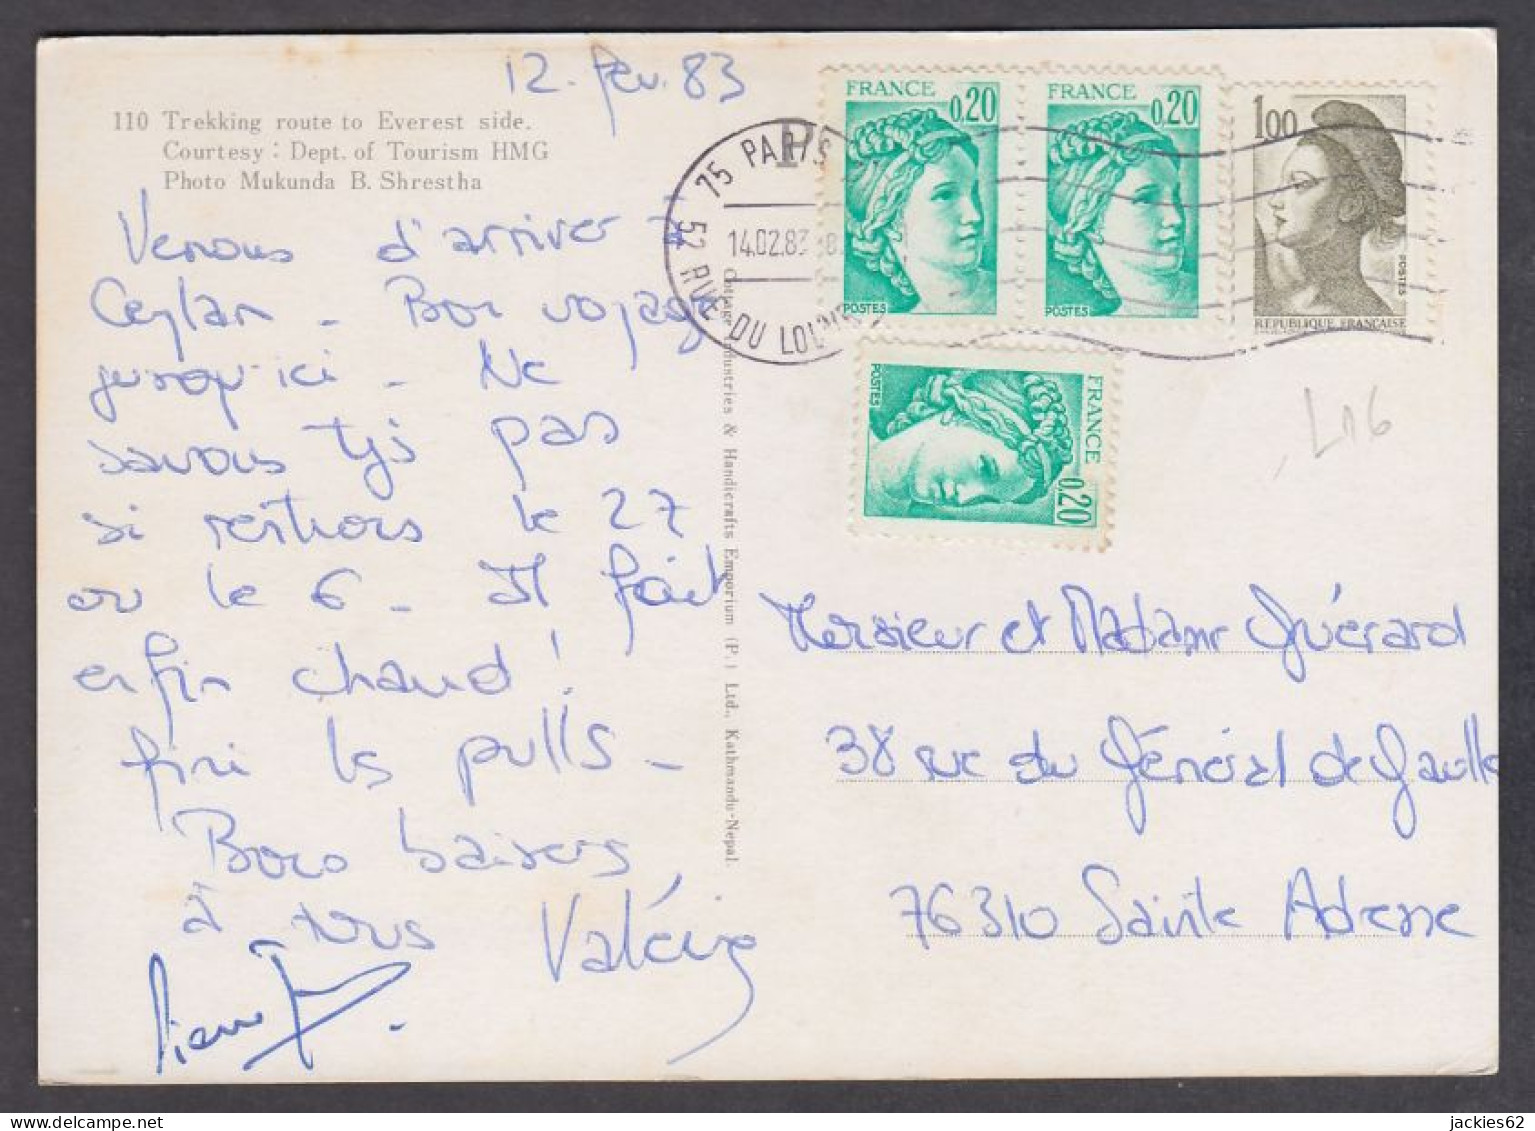 12. fév. 83
110 Trekking route to Everest side.
Courtesy : Dept. of Tourism HMG
Photo Mukunda B. Shrestha
Venons d'arriver à
Ceylan - Bon voyage
jusqu'ici - Ne
savons tjs pas
si rentrons le 27
ou le 6 - Il fait
enfin chaud !
fini les pulls -
Bons baisers
à tous Valérie
Pierre
Cottage Industries & Handicrafts Emporium (P.) Ltd., Kathmandu-Nepal.
75 PARIS
14.02.83
52 RUE DU LOUVRE
FRANCE
0,20
POSTES
FRANCE
0,20
POSTES
1,00
POSTES
RÉPUBLIQUE FRANÇAISE
FRANCE
0,20
POSTES
L16
Monsieur et Madame Guérard
38 rue du Général de Gaulle
76310 Sainte Adresse
jackies62